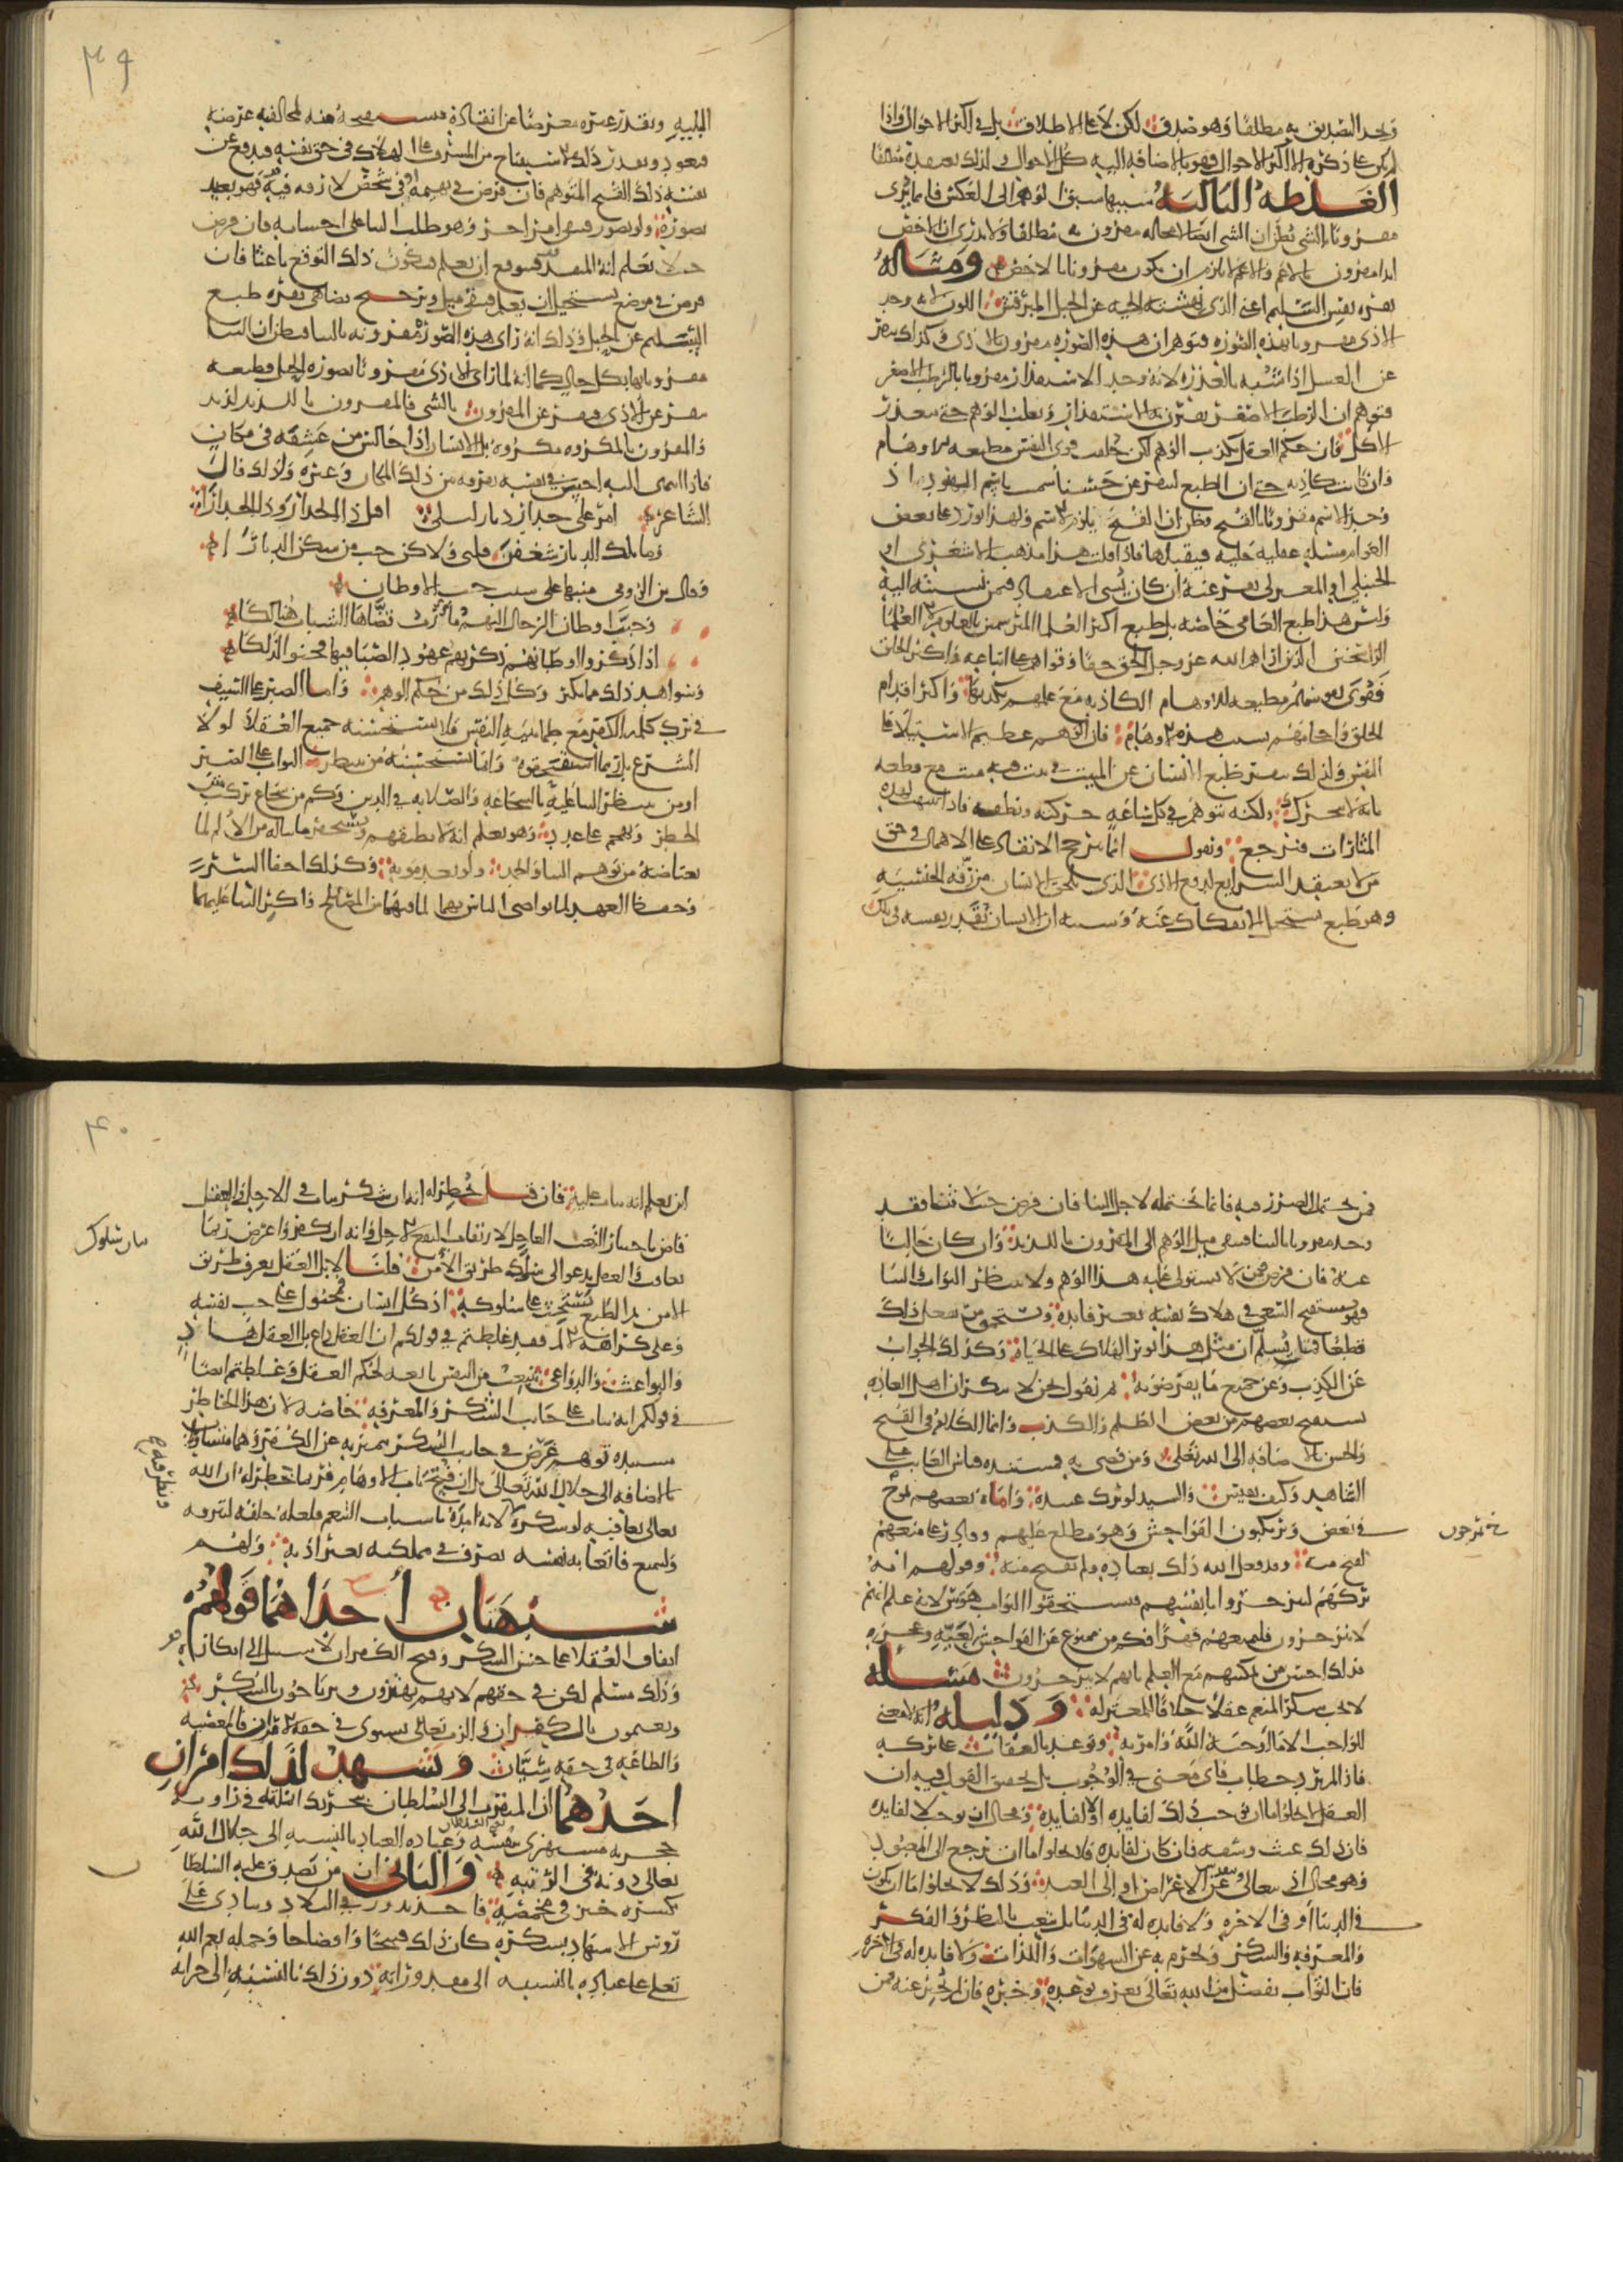 وجد التصديق به مطلقا وهو صدق لكن لا على الاطلاق بل في اكثر الاحوال واذا
لم يكن على ذكره الا اكثر الاحوال فهو بالاضافة اليه كل الاحوال ولذلك يعتقده مطلقا
الغلطة الثالثة سببها سبق الوهم الى العكس فان ما يرى
مقرونا بالشي يظن ان الشي ايضا لا محالة مقرون به مطلقا ولا يدري ان الاخص
ابدا مقرون بالاعم والاعم لا يلزم ان يكون مقرونا بالاخص ومثاله
نفرة نفس السليم اعني الذي نهشته الحية عن الحبل المبرقش اللون لانه وجد
الاذى مقرونا بهذه الصورة فتوهم ان هذه الصورة مقرونة بالاذى وكذلك ينفر
عن العسل اذا شبه بالعذرة لانه وجد الاستقذار مقرونا بالرطب الاصفر
فتوهم ان الرطب الاصفر يقترن به الاستقذار ويغلب الوهم حتى يتعذر
الاكل وان حكم العقل بكذب الوهم لكن خلقت قوى النفس مطيعة للاوهام
وان كانت كاذبة حتى ان الطبع لينفر عن حسناء سميت باسم اليهود اذ
وجد الاسم مقرونا بالقبح فظن ان القبح يلازم الاسم ولهذا تورد على بعض
العوام مسئلة عقلية جلية فيقبلها فاذا قلت هذا مذهب الاشعري او
الحنبلي او المعتزلي نفر عنه ان كان يسيء الاعتقاد فيمن نسبته اليه
وليس هذا طبع العامي خاصة بل طبع اكثر العلماء المترسمين بالعلوم الا العلماء
الراسخين الذين اراهم الله عز وجل الحق حقا وقواهم على اتباعه واكثر الخلق
قوى نفوسهم مطيعة للاوهام الكاذبة مع علمهم بكذبها واكثر اقدام
الخلق واحجامهم بسبب هذه الاوهام فان الوهم عظيم الاستيلاء على
النفس ولذلك ينفر طبع الانسان عن المبيت في بيت فيه ميت مع قطعه
بانه لا يتحرك ولكنه يتوهم في كل ساعة حركته ونطقه فاذا تنبهت لهذه
المثارات فنرجع ونقول انما يترجح الانقاذ على الاهمال في حق
من لا يعتقد الشرائع لدفع الاذى الذي يلحق الانسان من رقة الجنسية
وهو طبع يستحيل الانفكاك عنه وسببه ان الانسان يقدر نفسه في تلك
٣٩
البلية ويقدر غيره معرضا عن انقاذه فيستقبحه منه لمخالفته غرضه
فيعود ويقدر ذلك الاستقباح من المشرف على الهلاك في حق نفسه فيدفع عن
نفسه ذلك القبح المتوهم فان فرض في بهيمة او في شخص لا رقة فيه فهو بعيد
تصوره ولو تصور فيبقى امر اخر وهو طلب الثناء على احسانه فان فرض
حيث لا يعلم انه المنقذ فيتوقع ان يعلم فيكون ذلك التوقع باعثا فان
فرض في موضع يستحيل ان يعلم فيبقى ميل وترجح يضاهي نفرة طبع
السليم عن الحبل وذلك انه راى هذه الصورة مقرونة بالثناء فظن ان الثناء
مقرونا بها بكل حال كما انه لما راى الاذى مقرونا بصورة الحبل فطبعه
ينفر عن الاذى فينفر عن المقرون بالشي فالمقرون باللذيذ لذيذ
والمقرون بالمكروه مكروه بل الانسان اذا جالس من عشقه في مكان
فاذا انتهى اليه احس في نفسه تفرقة بين ذلك المكان وغيره ولذلك قال
الشاعر امر على جدار ديار ليلى اقبل ذا الجدار وذا الجدارا
وما تلك الديار شغفن قلبي ولكن حب من سكن الديارا
وقال بن الرومي منبها على سبب حب الاوطان
وحبب اوطان الرجال اليهم مآرب قضاها الشباب هنالكا
اذا ذكروا اوطانهم ذكرتهم عهود الصبا فيها فحنوا لذلكا
وشواهد ذلك مما يكثر وكل ذلك من حكم الوهم واما الصبر على السيف
في ترك كلمة الكفر مع طمانينة النفس فلا يستحسنه جميع العقلاء لولا
الشرع بل ربما استقبحوه وانما استحسنه من ينتظر الثواب على الصبر
او من ينتظر الثناء عليه بالشجاعة والصلابة في الدين وكم من شجاع يركب متن
الخطر ويهجم على عدد وهو يعلم انه لا يطيقهم ويستحقر ما يناله من الالم لما
يعتاضه من توهم الثناء والحمد ولو بعد موته وكذلك اخفاء السر
وحفظ العهد لما تواصى الناس بهما لما فيهما من المصالح واكثر الثناء عليهما
فمن يحتمل الضرر فيه فانما يحتمله لاجل الثناء فان فرض حيث لا ثناء فقد
وجد مقرونا بالثناء فيبقى ميل الوهم الى المقرون باللذيذ وان كان خاليا
عنه فان فرض من لا يستولي عليه هذا الوهم ولا ينتظر الثواب والثناء
فهو يستقبح السعي في هلاك نفسه بغير فائدة ويستحمق من يفعل ذلك
قطعا فمن يسلم ان مثل هذا يوثر الهلاك على الحياة وكذلك الجواب
عن الكذب وعن جميع ما يفرضونه ثم نقول نحن لا ننكر ان اهل العادة
يستقبح بعضهم من بعض الظلم والكذب وانما الكلام في القبح
والحسن بالاضافة الى الله تعالى ومن قضى به فمستنده قياس الغائب على
الشاهد وكيف يقيس والسيد لو ترك عبيده واماءه بعضهم يموج
في بعض ويرتكبون الفواحش وهو مطلع عليهم وقادر على منعهم
خ يمرحون
لقبح منه وقد فعل الله ذلك بعباده ولم يقبح منه وقولهم انه
تركهم لينزجروا بانفسهم فيستحقوا الثواب هوس لانه علم انهم
لا ينزجرون فليمنعهم قهرا فكم من ممنوع عن الفواحش لعنة وعجزه
وذلك احسن من تمكينهم مع العلم بانهم لا ينزجرون مسئلة
لا يجب شكر المنعم عقلا خلافا للمعتزلة ودليله انه لا معنى
للواجب الا ما اوجبه الله وامر به وتوعد بالعقاب على تركه
فاذا لم يرد خطاب فاي معنى في الوجوب بل تحقيق القول فيه ان
العقل لا يخلو اما ان يوجب ذلك لفائدة او لا لفائدة ومحال ان يوجب لا لفائدة
فان ذلك عبث وسفه فان كان لفائدة فلا يخلو اما ان ترجع الى المعبود
وهو محال اذ تعالى وتقدس عن الاغراض او الى العبد وذلك لا يخلو اما ان يكون
في الدنيا او في الاخرة ولا فائدة له في الدنيا بل يتعب بالنظر والفكر
والمعرفة والشكر ويحرم به عن الشهوات واللذات ولا فائدة له في الاخرة
فان الثواب تفضل من الله تعالى يعرف بوعده وخبره فان لم يخبر عنه فمن
٤٠
اين يعلم انه يثاب عليه فان قيل يخطر له انه ان شكر يثاب في الاجل والعقل
قاض باحتمال التعب العاجل لارتقاب النفع الاجل وانه ان كفر واعرض ربما
يعاقب والعقل يدعو الى سلوك طريق الامن قلنا لا بل العقل يعرف طريق
الامن ثم الطبع يستحث على سلوكه اذ كل انسان مجبول على حب نفسه
وعلى كراهة الالم فقد غلطتم في قولكم ان العقل داع بل العقل هاد
والبواعث والدواعي تنبعث من النفس تابعة لحكم العقل وغلطتم ايضا
في قولكم انه يثاب على جانب الشكر والمعرفة خاصة لان هذا الخاطر
مستنده توهم غرض في جانب الشكر يتميز به عن الكفر وهما متساويان
بالاضافة الى جلال الله تعالى بل ان فتح باب الاوهام فربما يخطر له ان الله
تعالى يعاقبه لو شكره لانه امده باسباب التنعم فلعله خلقه لترفه
وليتمتع فاتعابه نفسه تصرف في مملكته بغير اذنه ولهم
شبهتان احداهما قولهم
اتفاق العقلاء على حسن الشكر وقبح الكفران لا سبيل الى انكاره
وذلك مسلم لكن في حقهم لانهم يهتزون ويرتاحون بالشكر
ويغتمون بالكفران والرب تعالى يستوي في حقه الامران فالمعصية
والطاعة في حقه سيان ويشهد لذلك امران
احدهما ان المتقرب الى السلطان بتحريك انملته في زاوية
حجرته مستهزئ بنفسه وعبادة العباد بالنسبة الى جلال الله
تعالى دونه في الرتبة والثاني ان من تصدق عليه السلطان
بكسرة خبز في مخمصة فاخذ يدور في البلاد وينادي على
رؤس الاشهاد بشكره كان ذلك قبيحا وافتضاحا وجملة نعم الله
تعالى على عباده بالنسبة الى مقدوراته دون ذلك بالنسبة الى خزانة